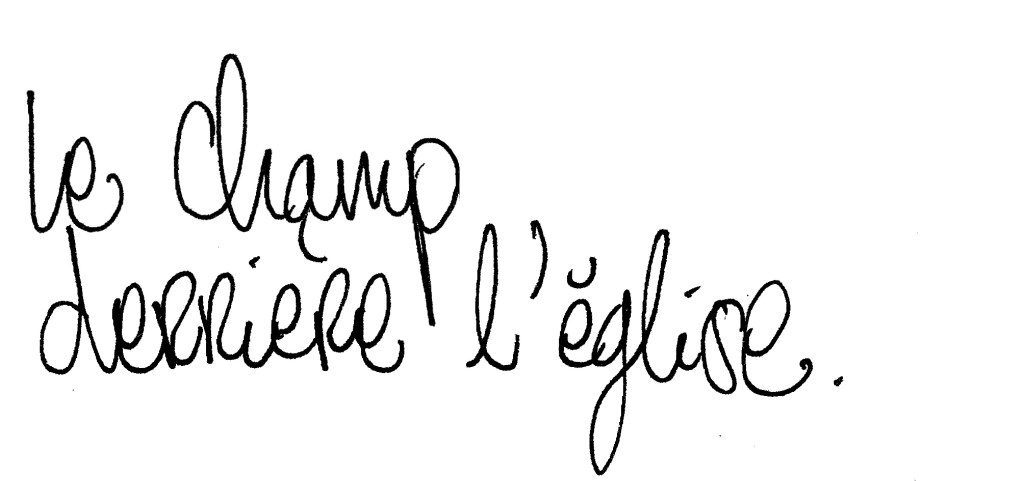 Le Chąmp
derriere l'ĕglise.